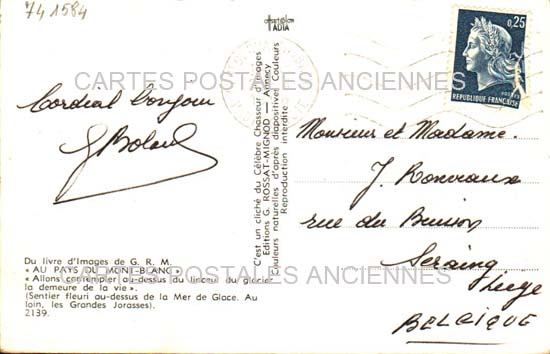 74 1584
CARTES POSTALES ANCIENNES
Cordial bonjour
0,25
POSTES
REPUBLIQUE FRANÇAISE
Monsieur et Madame.
J. Ronvaux
rue du Buisson
Seraing
Liège
BELGIQUE
C'est un cliché du Célèbre Chasseur d'Images
Editions G. ROSSAT-MIGNOD — Annecy
Couleurs naturelles d'après diapositives Couleurs
Reproduction interdite
Du livre d'Images de G. R. M.
« AU PAYS DU MONT-BLANC »
« Allons contempler au-dessus du linceul du glacier
la demeure de la vie ».
(Sentier fleuri au-dessus de la Mer de Glace. Au
loin, les Grandes Jorasses).
2139.
CARTES POSTALES ANCIENNES